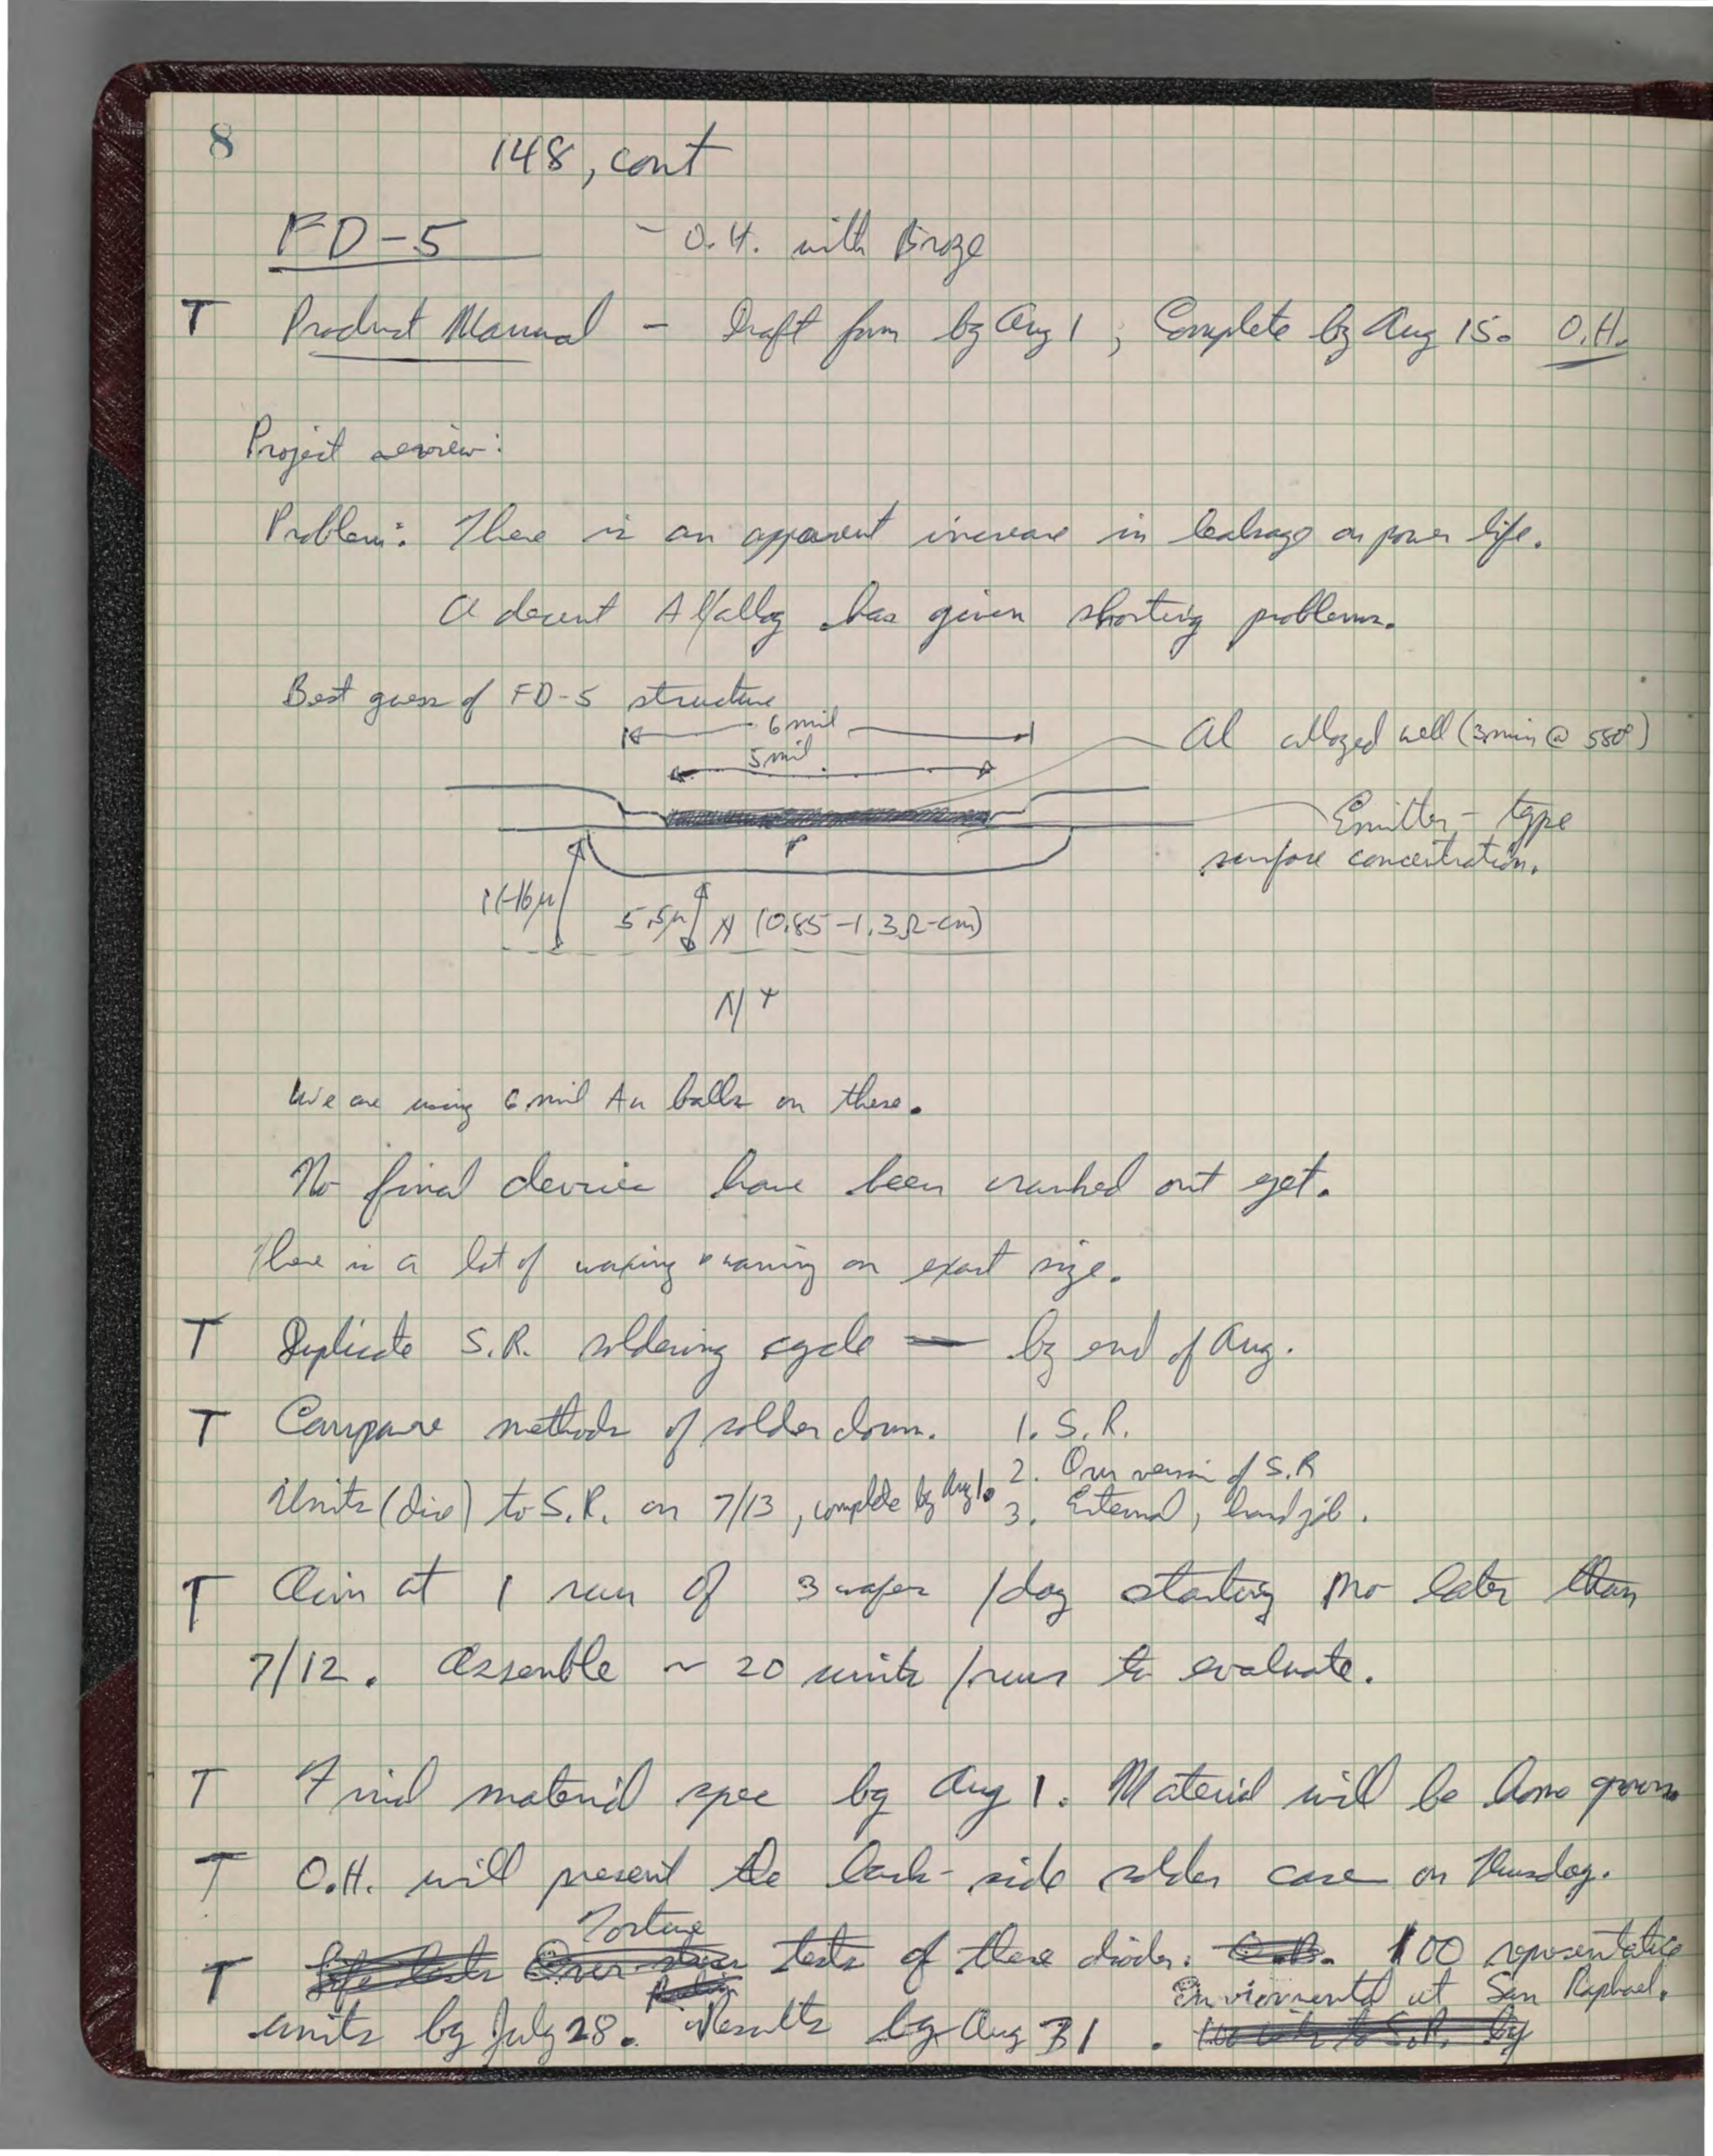 8
148, cont
FD-5 - O.H. with Broze
T Product Manual - Draft form by Aug 1, Complete by Aug 15. O.H.
Project review:
Problem: There is an apparent increase in leakage on power life.
A decent Al/alloy has given shorting problems.
Best guess of FD-5 structure
6 mil
5 mil
Al alloyed well (3 min @ 580°)
Emitter-type
surface concentration.
P
5.5μ N (0.85-1.3Ω-cm)
N+
We are using 6 mil Au balls on these.
No final devices have been cranked out yet.
There is a lot of waxing & waning on exact size.
T Duplicate S.R. soldering cycle — by end of Aug.
T Compare methods of solder down. 1. S.R.
2. Our version of S.R
Units (dice) to S.R. on 7/13, complete by Aug 1. 3. External, hand job.
T Aim at 1 run of 3 wafers /day starting no later than
7/12. Assemble ~ 20 units /run to evaluate.
T Final material spec by Aug 1. Material will be home grown
T O.H. will present the back-side solder case on Thursday.
Torture
T tests of these diodes. 100 representative
Enviormental at San Raphael.
units by July 28. Results by Aug 31.